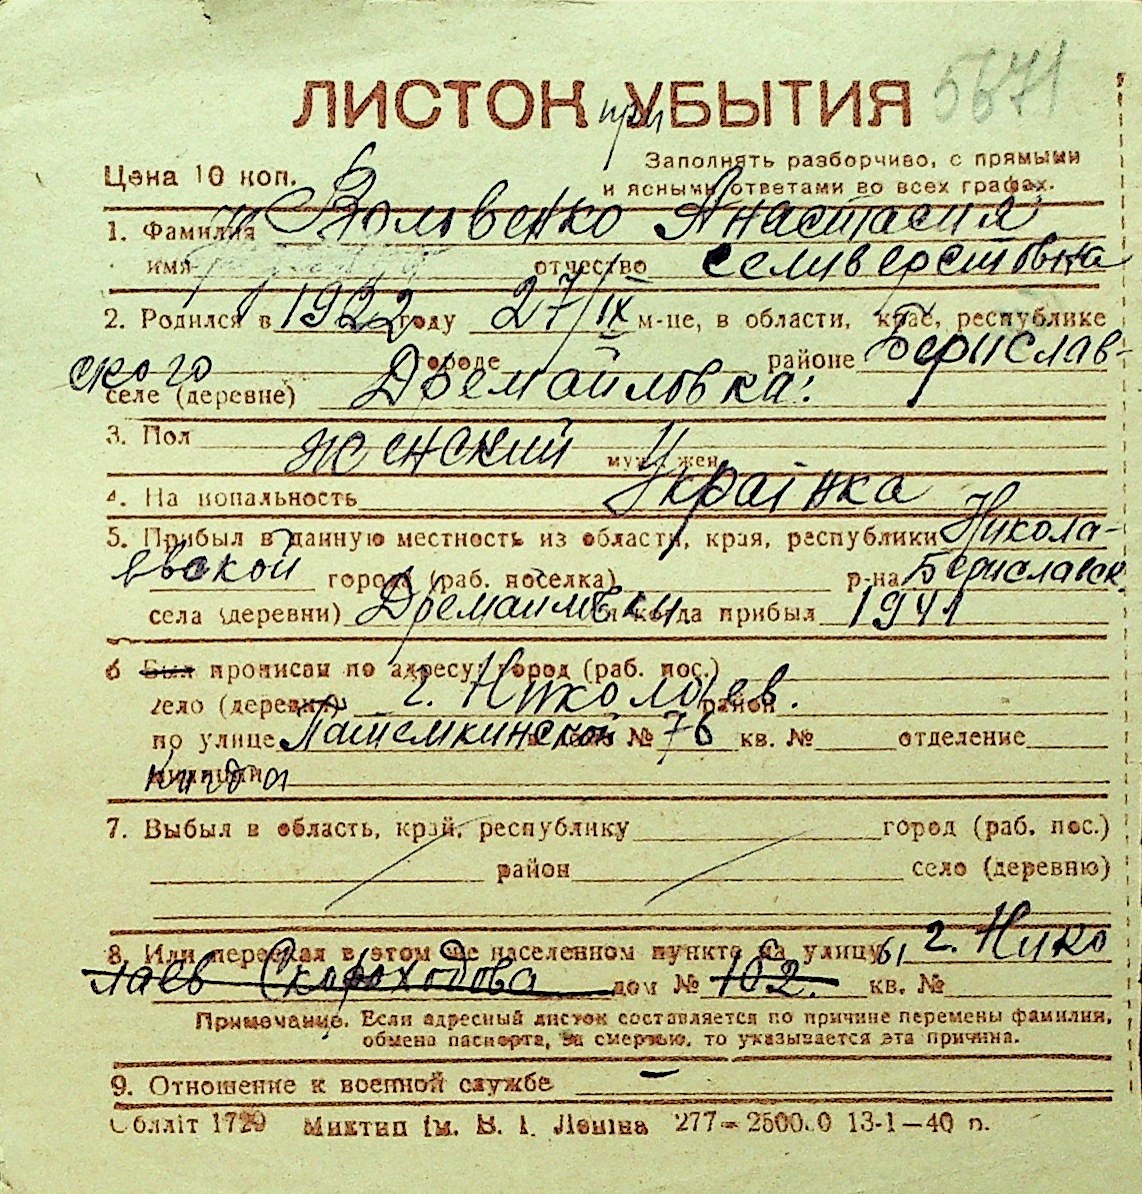 5671
ЛИСТОК при УБЫТИЯ
Цена 10 коп.
Заполнять разборчиво, с прямыми
и ясными ответами во всех графах.
1. Фамилия Воловенко Анастасия
имя отчество Селиверстовна
2. Родился в 1922 году 27/IX м-це, в области, крае, республике
городе районе Берислав-
ского
селе (деревне) Дремайловка.
3. Пол женский муж. жен.
4. На ионал ьность Українка
5. Прибыл в данную местность из области, края, республики Никола-
евской города (раб. поселка) р-на Бериславск
села (деревни) Дремайловки и когда прибыл 1941
6 Был прописан по адресу: город (раб. пос.)
село (деревня) г. Николаев. район
по улице Патемкинской дом № 76 кв. № отделение
милиции
7. Выбыл в область, край, республику город (раб. пос.)
район село (деревню)
8. Или переехал в этом же населенном пункте на улицу г. Нико
лаев Скороходова дом № 102. кв. №
Примечание. Если адресный листок составляется по причине перемены фамилии,
обмена паспорта, за смертью, то указывается эта причина.
9. Отношение к военной службе —
Облліт 1729 Миктип ім. В. І. Леніна 277—2500.0 13-1—40 п.